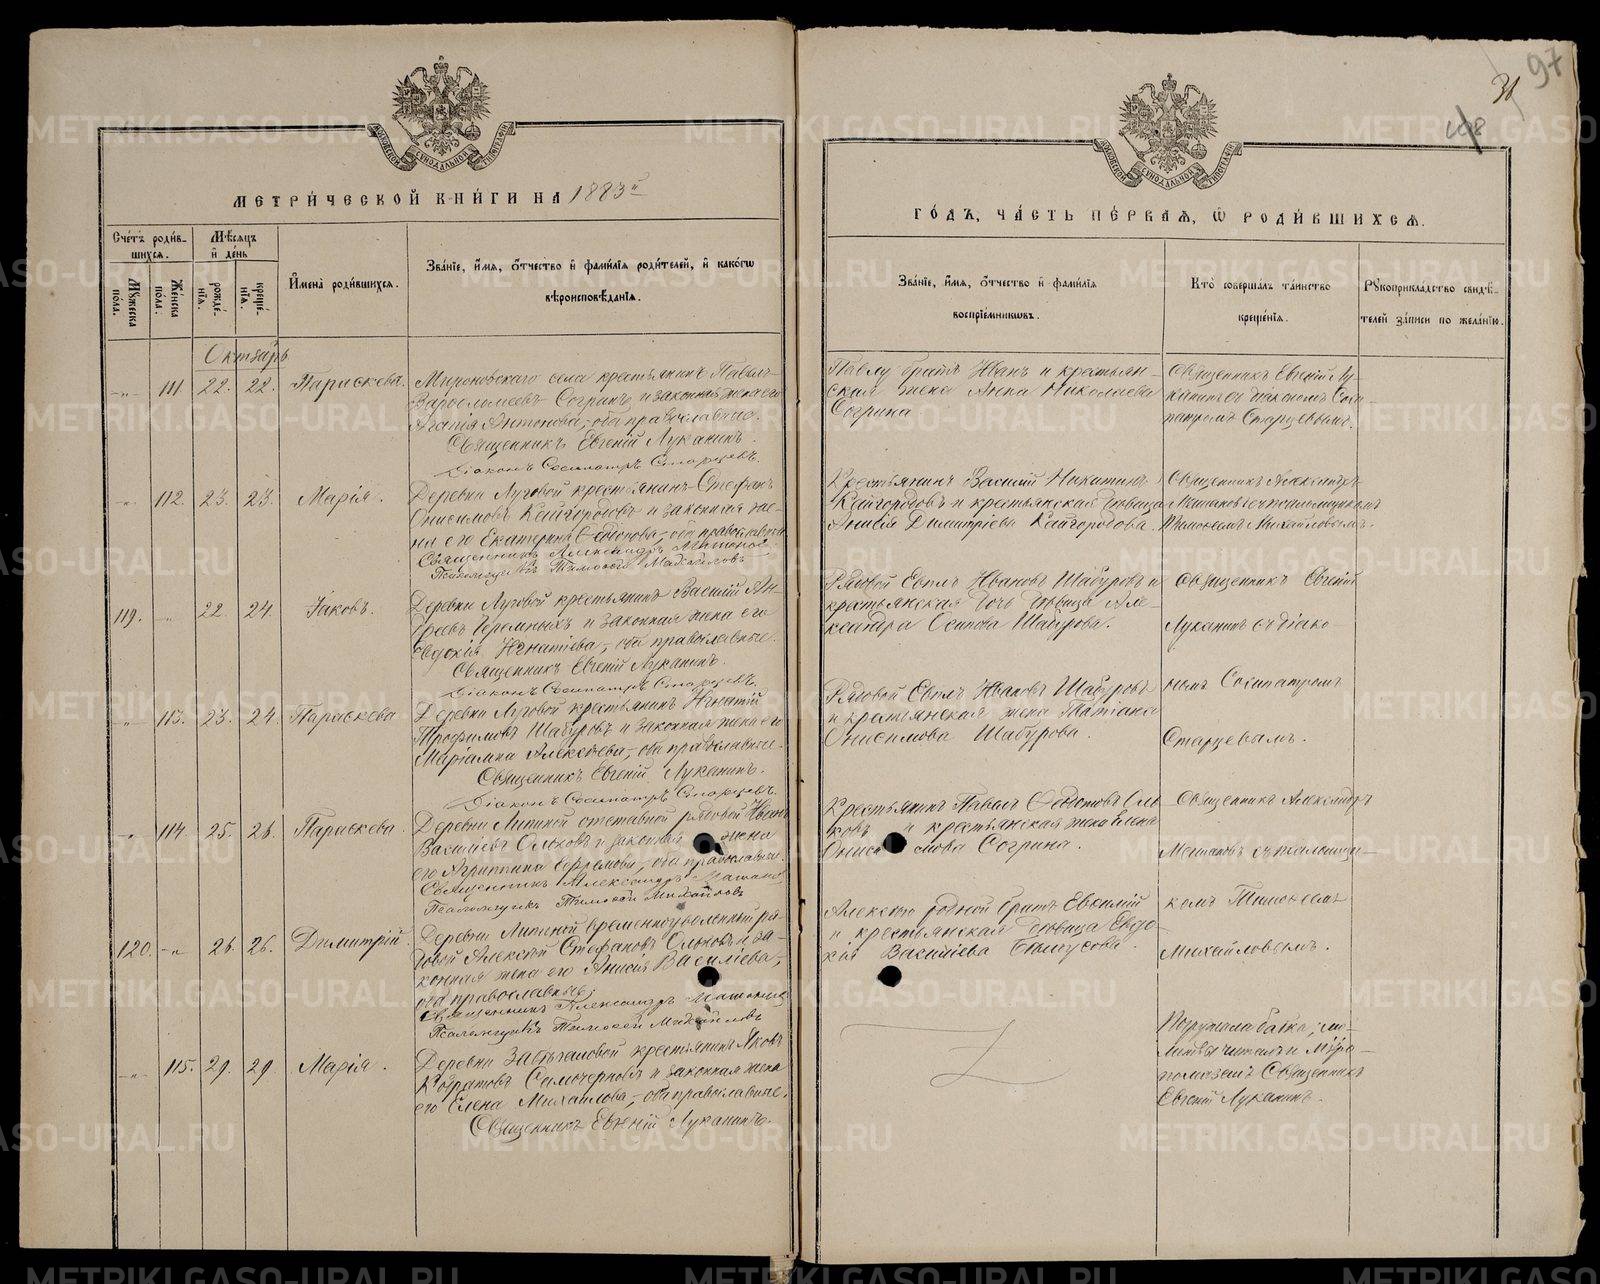 97
31
108
МОСКОВСКОЙ СУНОДАЛЬНОЙ ТИПОГРАФІИ
МОСКОВСКОЙ СУНОДАЛЬНОЙ ТИПОГРАФІИ
МЕТРИ́ЧЕСКОЙ КНИ́ГИ НА 1883й
ГО́ДЪ, ЧА́СТЬ ПЕ́РВАѦ, Ѡ РОДИ́ВШИХСѦ.
Сче́тъ роди́в-
шихся.
Мѣ́сяцъ
и̑ де́нь
Мꙋ́жеска
по́ла.
Же́нска
по́ла.
рожде́-
нїя.
креще́-
нїя.
И̑мена̀ роди́вшихся.
Зва́нїе, и́мя, ѻ҆́тчество и҆ фами́лїя роди́телей, и҆ како́гѡ
вѣроисповѣ́данїя.
Зва́нїе, и́мя, ѻ҆́тчество и҆ фами́лїя
воспрїе́мникѡвъ.
Кто̀ соверша́лъ та́инство
креще́нїя.
Рꙋкоприкла́дство свидѣ́-
телей за́писи по жела́нїю.
Октябрь
-„- 111 22. 22. Параскева.
Мироновскаго села крестьянинъ Павелъ
Варѳоломеевъ Согринъ и законная жена его
Агапія Антонова, оба православные.
Священникъ Евгеній Луканинъ.
Діаконъ Сосипатръ Старцевъ.
Павлу братъ Иванъ и крестьян-
ская жена Анна Николаева
Согрина
Священникъ Евгеній Лу-
канинъ съ діакономъ Соси-
патромъ Старцевымъ.
-„- 112. 23. 23. Марія.
Деревни Луговой крестьянинъ Стефанъ
Онисимовъ Кайгородовъ и законная же-
на его Екатерина, оба православные
Священникъ Александръ
Псаломщикъ Тимоѳей Михайловъ
Крестьянинъ Василій Никитинъ
Кайгородовъ и крестьянская дѣвица
Анисія Димитріева Кайгородова.
Священникъ Александръ
съ псаломщикомъ
Тимоѳеемъ Михайловымъ.
119. -„- 22. 24. Іаковъ.
Деревни Луговой крестьянинъ Василій Ан-
дреевъ Черемныхъ и законная жена его
Евдокія Игнатіева, оба православные.
Священникъ Евгеній Луканинъ.
Діаконъ Сосипатръ Старцевъ.
Рядовой Иванов Шабуровъ и
крестьянская дочь дѣвица Але-
ксандра Осипова Шабурова.
Священникъ Евгеній
Луканинъ съ діако-
-„- 113. 23. 24. Параскева
Деревни Луговой крестьянинъ Игнатій
Трофимовъ Шабуровъ и законная жена его
Маріамна Алексѣева, оба православные.
Священникъ Евгеній Луканинъ.
Діаконъ Сосипатръ Старцевъ.
Рядовой Ивановъ Шабуровъ
и крестьянская жена Татіана
Онисимова Шабурова.
номъ Сосипатромъ
Старцевымъ.
-„- 114. 25. 26. Параскева.
Деревни Липиной отставной рядовой Иванъ
Василіевъ Ольковъ и законная жена
его Агриппина Ефремова, оба православные.
Священникъ Александръ
Псаломщикъ Тимоѳей Михайловъ
Крестьянинъ Павелъ Ѳедотовъ Оль-
ковъ и крестьянская жена Елена
Согрина.
Священникъ Александръ
съ псаломщи-
120. -„- 26. 26. Димитрій.
Деревни Липиной временноуволенный ря-
довой Алексѣй Стефановъ Ольковъ и за-
конная жена его Анисія Василіева,
оба православные;
Священникъ Александръ
Псаломщикъ Тимоѳей Михайловъ
Алексѣю родной братъ Евѳимій
и крестьянская дѣвица Евдо-
кія Василіева
комъ Тимоѳеемъ
Михайловымъ.
-„- 115. 29. 29 Марія.
Деревни крестьянинъ Яковъ
Кодратовъ Самочерновъ и законная жена
его Елена Михайлова, оба православные.
Священникъ Евгеній Луканинъ.
Погружала бабка, мо-
литвы читалъ и Мѵро-
помазалъ Священникъ
Евгеній Луканинъ.
METRIKI.GASO-URAL.RU